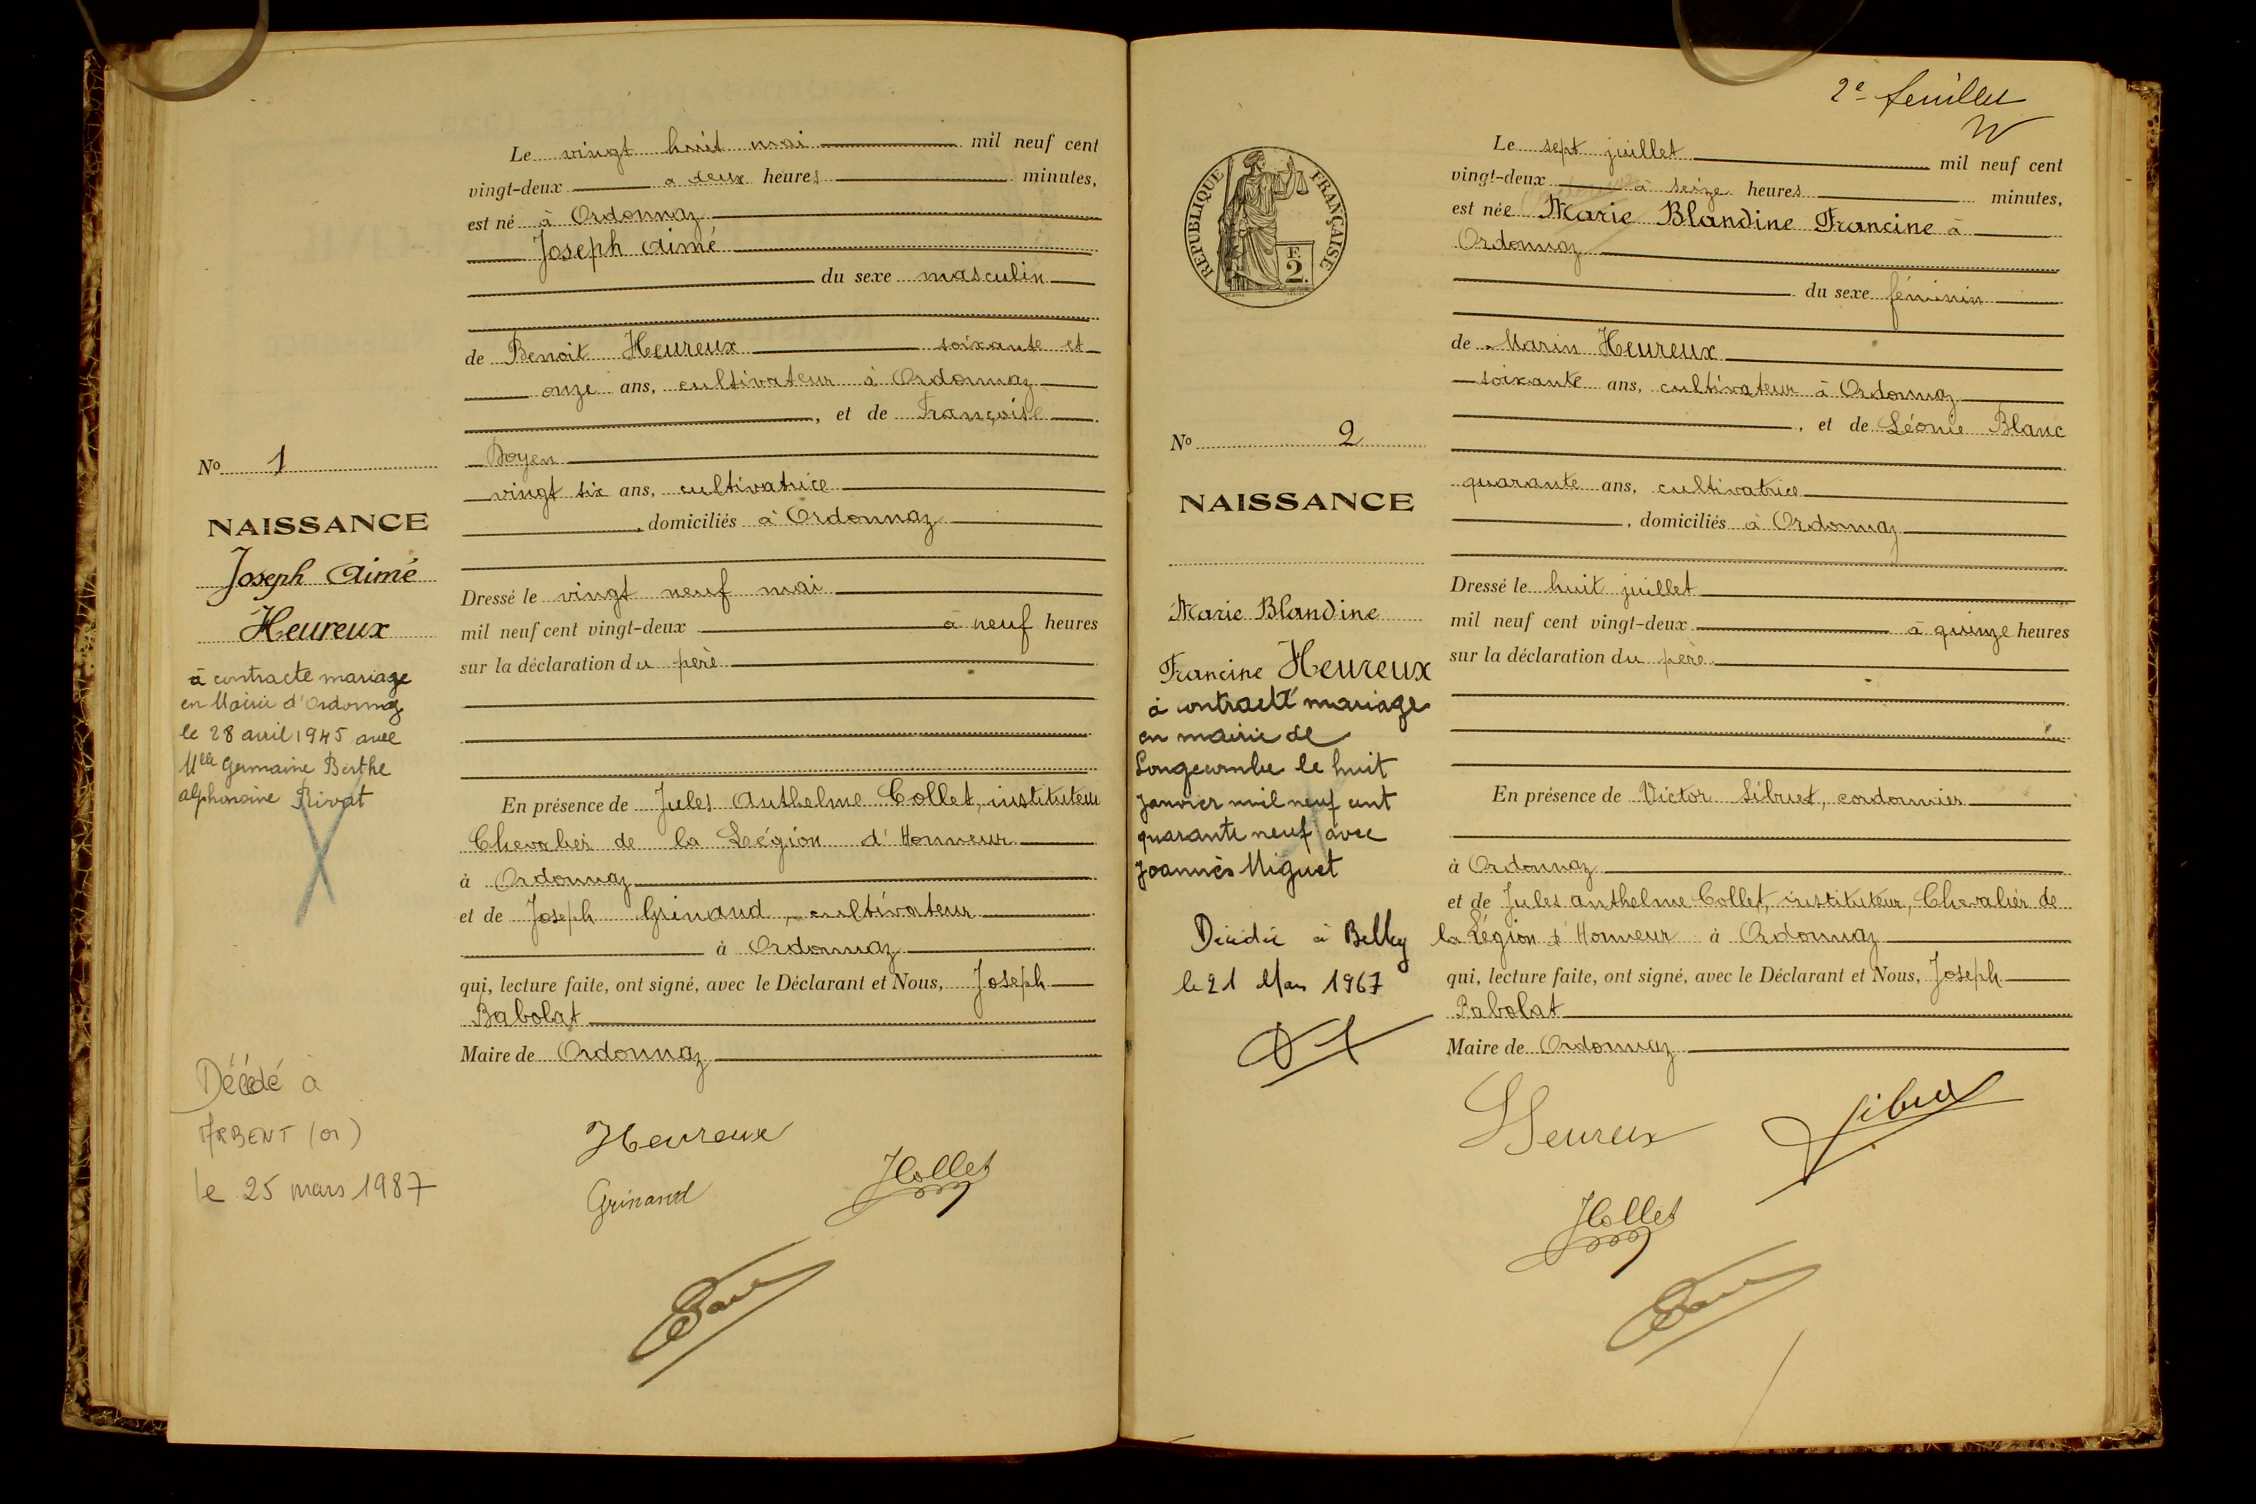 Le vingt huit mai mil neuf cent
vingt-deux à deux heures minutes,
est né à Ordonnaz
Joseph Aimé
du sexe masculin
de Benoit Heureux soixante et
onze ans, cultivateur à Ordonnaz
, et de Françoise
Doyen
vingt six ans, cultivatrice
, domiciliés à Ordonnaz
Dressé le vingt neuf mai
mil neuf cent vingt-deux à neuf heures
sur la déclaration du père
En présence de Jules Anthelme Collet, instituteur
Chevalier de la Légion d'Honneur
à Ordonnaz
et de Joseph Grinand, cultivateur
à Ordonnaz
qui, lecture faite, ont signé, avec le Déclarant et Nous, Joseph
Babolat
Maire de Ordonnaz
Heureux
Grinand
JCollet
No 1
NAISSANCE
Joseph Aimé
Heureux
à contracté mariage
en Mairie d'Ordonnaz
le 28 avril 1945 avec
Melle Germaine Berthe
Alphonsine Rivat
Décédé à
ARBENT (01)
le 25 mars 1987
2e feuillet
REPUBLIQUE FRANÇAISE
F.
2.
Le sept juillet mil neuf cent
vingt-deux à seize heures minutes,
est née Marie Blandine Francine à
Ordonnaz
du sexe féminin
de Marin Heureux
soixante ans, cultivateur à Ordonnaz
, et de Léonie Blanc
quarante ans, cultivatrice
, domiciliés à Ordonnaz
Dressé le huit juillet
mil neuf cent vingt-deux à quinze heures
sur la déclaration du père
En présence de Victor Sibuet, cordonnier
à Ordonnaz
et de Jules Anthelme Collet, instituteur, Chevalier de
la Légion d'Honneur à Ordonnaz
qui, lecture faite, ont signé, avec le Déclarant et Nous, Joseph
Babolat
Maire de Ordonnaz
Heureux
Sibuet
JCollet
No 2
NAISSANCE
Marie Blandine
Francine Heureux
à contracté mariage
en mairie de
Longecombe le huit
janvier mil neuf cent
quarante neuf avec
Joannès Miguet
Décédée à Belley
le 21 Mars 1967